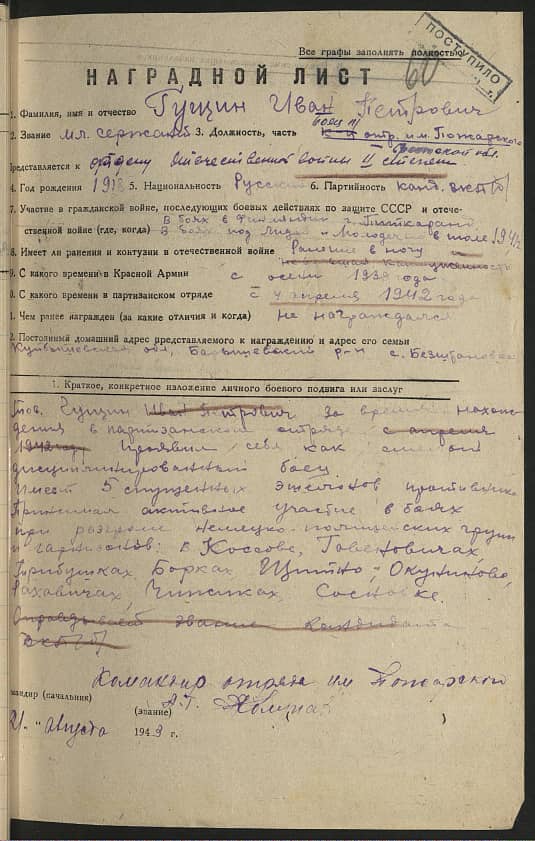 Все графы заполнять полностью
ПОСТУПИЛО
60
НАГРАДНОЙ ЛИСТ
1. Фамилия, имя и отчество Гущин Иван Петрович
боец
2. Звание мл. сержант 3. Должность, часть отр. им. Пожарского
Представляется к ордену Отечественной войны II степени
4. Год рождения 1918 5. Национальность Русский 6. Партийность канд. ВКП(б)
7. Участие в гражданской войне, последующих боевых действиях по защите СССР и отече-
ственной войне (где, когда) В боях в Финляндии г. Питкаранта
В боях под Лида и Молодечно в июле 1941
8. Имеет ли ранения и контузии в отечественной войне Ранение в ногу и
9. С какого времени в Красной Армии с осени 1939 года
0. С какого времени в партизанском отряде с 4 апреля 1942 года
1. Чем ранее награжден (за какие отличия и когда) не награждался
2. Постоянный домашний адрес представляемого к награждению и адрес его семьи
Куйбышевская обл, Барышевский р-н с.
1. Краткое, конкретное изложение личного боевого подвига или заслуг
Тов. Гущин Иван Петрович за время нахож-
дения в партизанском отряде с апреля
1942 года проявил себя как смелый
дисциплинированный боец
Имеет 5 спущенных эшелонов противника
Принимал активное участие в боях
при разгроме немецко-полицейских групп
и гарнизонов: в Коссове, Гавеновичах,
Трибушках, Борках, Щитно, Окуниново,
Чижиках, Сосновке.
Оправдывает звание кандидата
ВКП(б)
Командир отряда им Пожарского
мандир (начальник)
(звание)
21. " августа 1943 г.